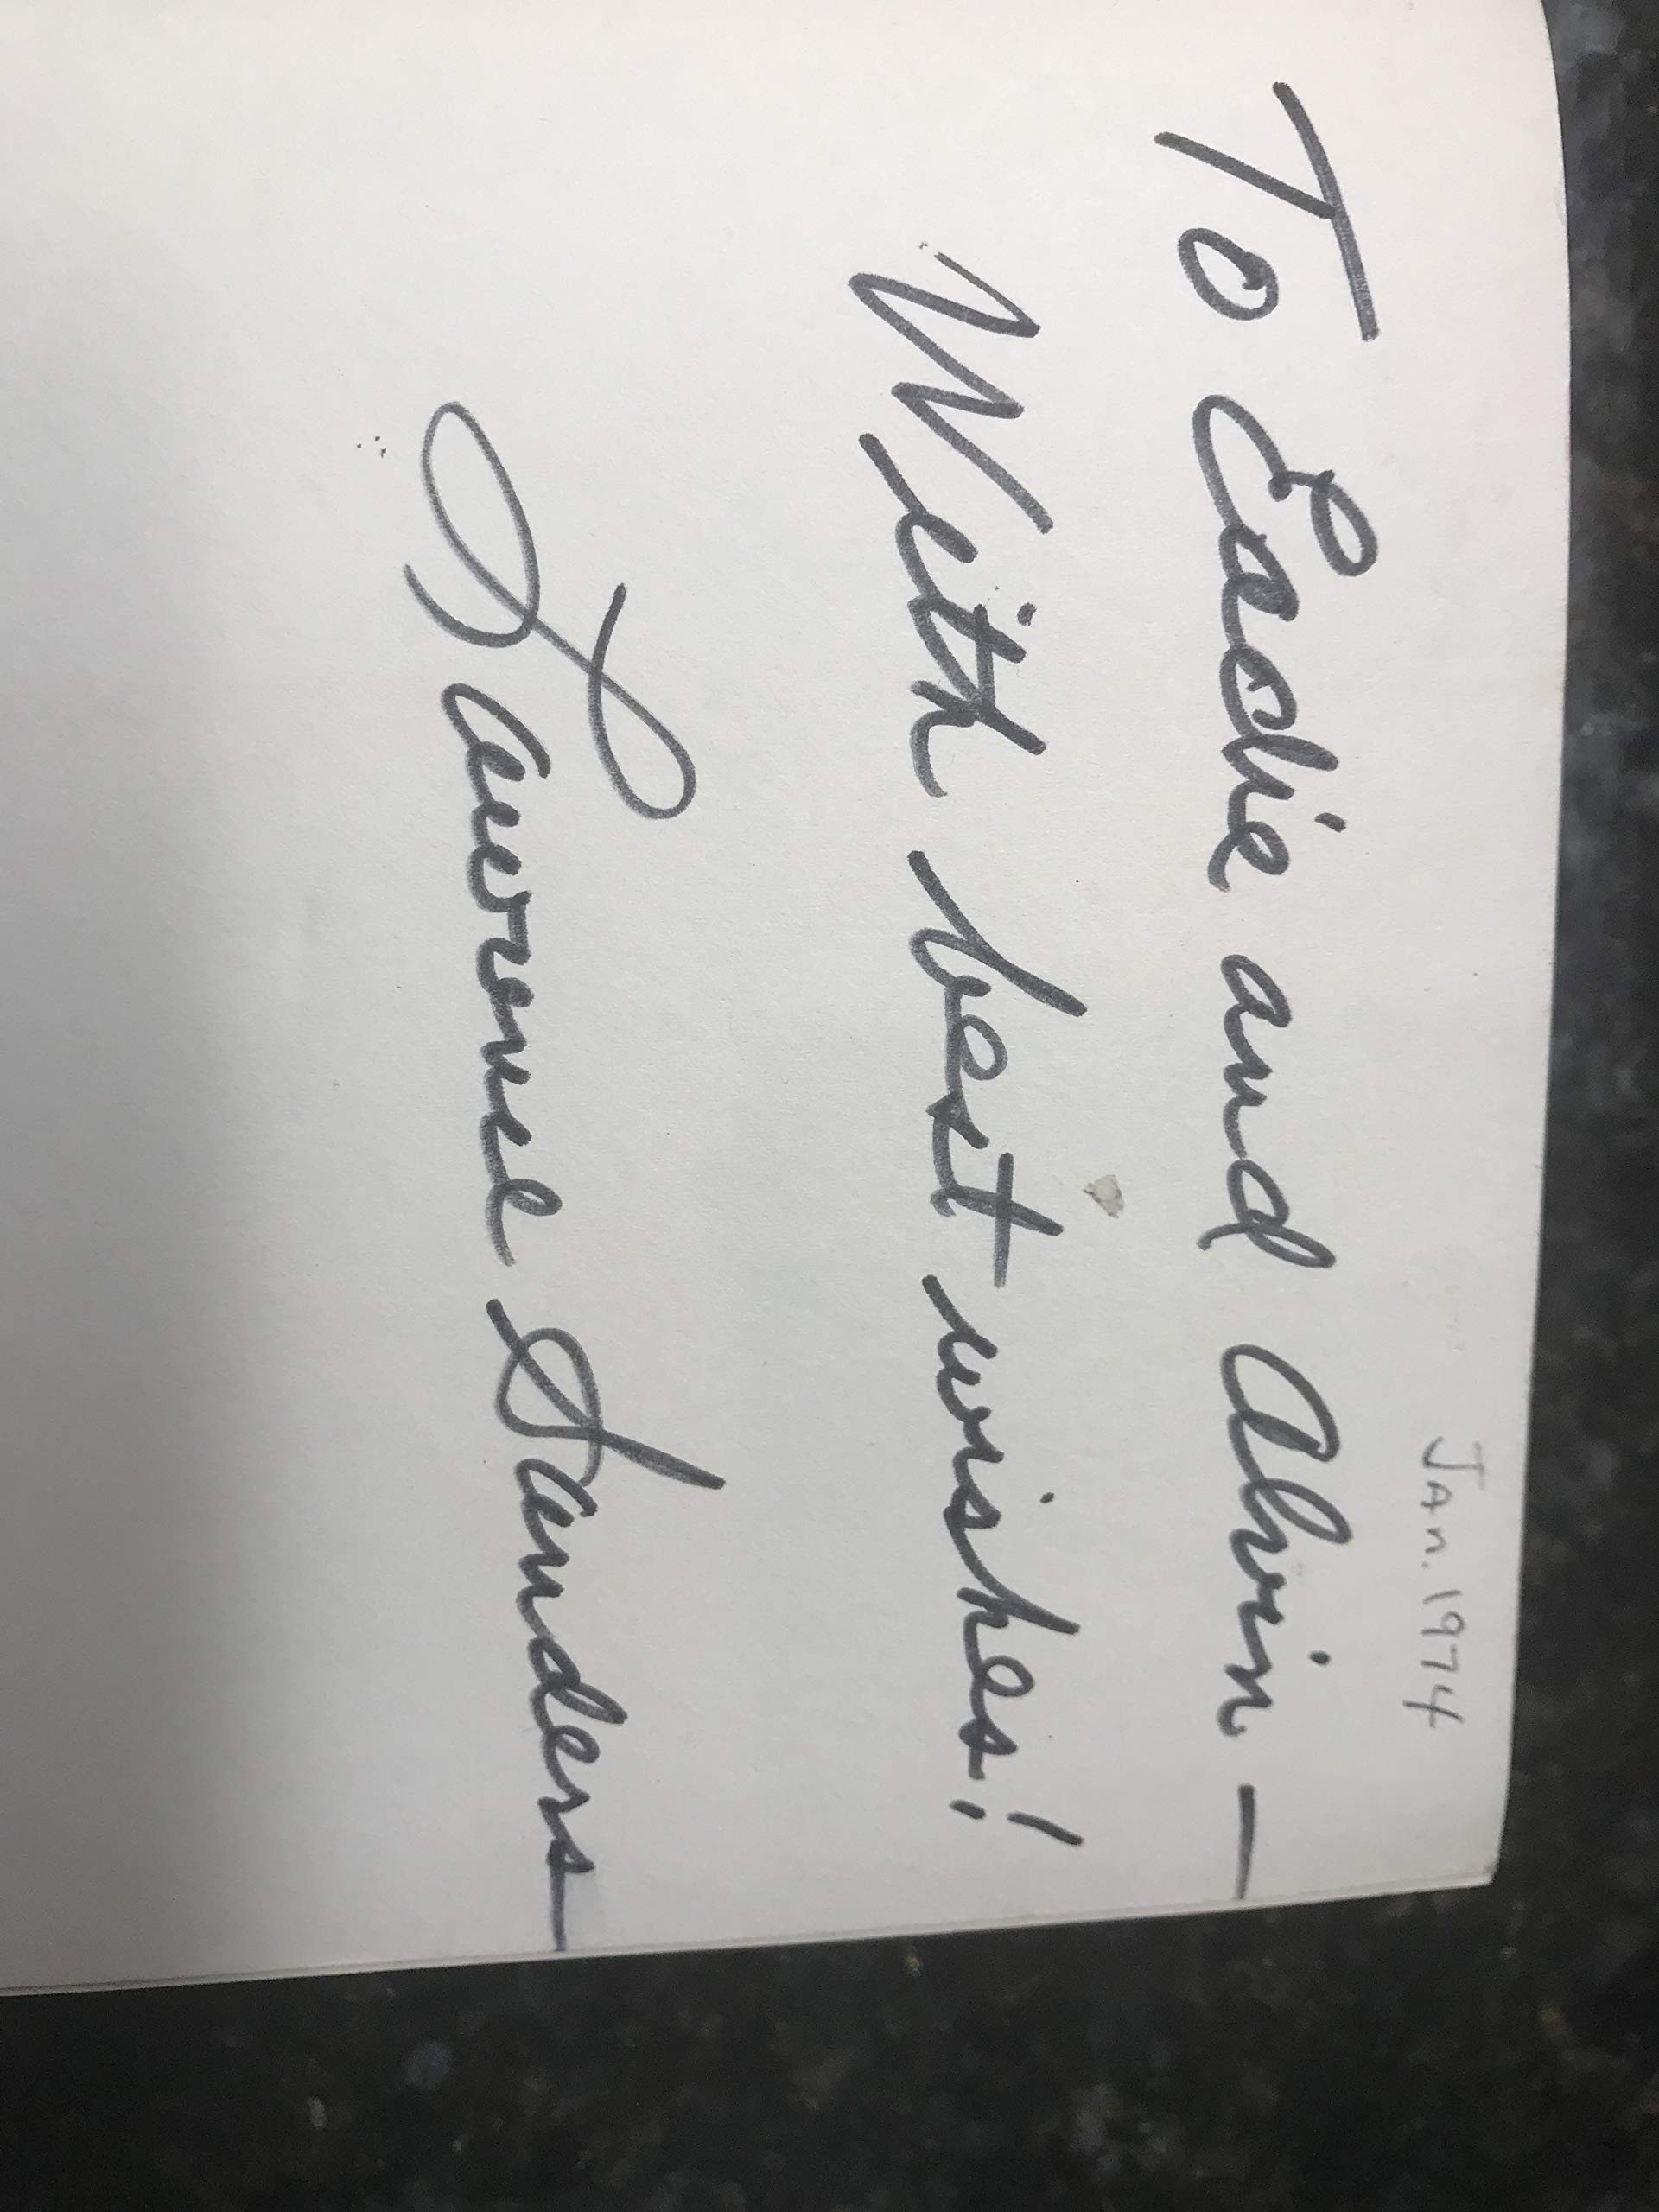 Jan. 1974
To Eadie and Alvin —
With best wishes!
Lawrence Sanders